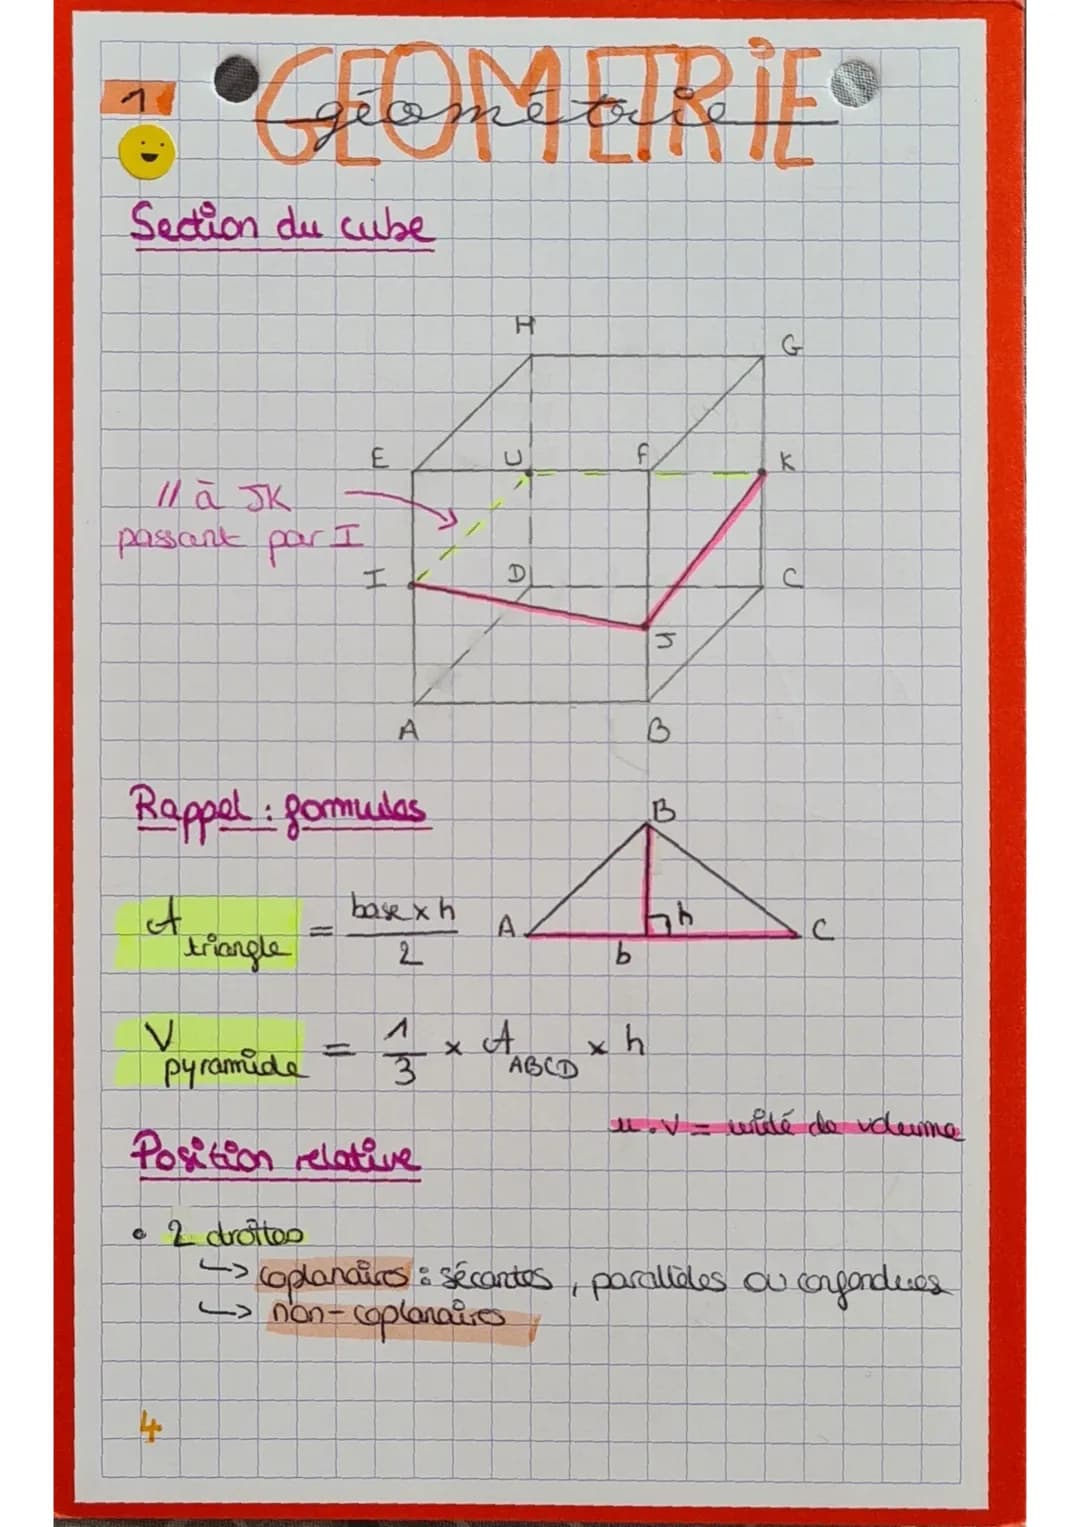 1
GEOMETRIE
géométrie
Section du cube
H
G
E
U
F
K
// à JK
passant par I
I
D
C
J
A
B
Rappel : formules
B
A triangle = base x h / 2
A
h
C
b
V pyramide = 1/3 x A ABCD x h
u.v = unité de volume
Position relative
• 2 droites
↳ coplanaires : sécantes, parallèles ou confondues
↳ non-coplanaires
4